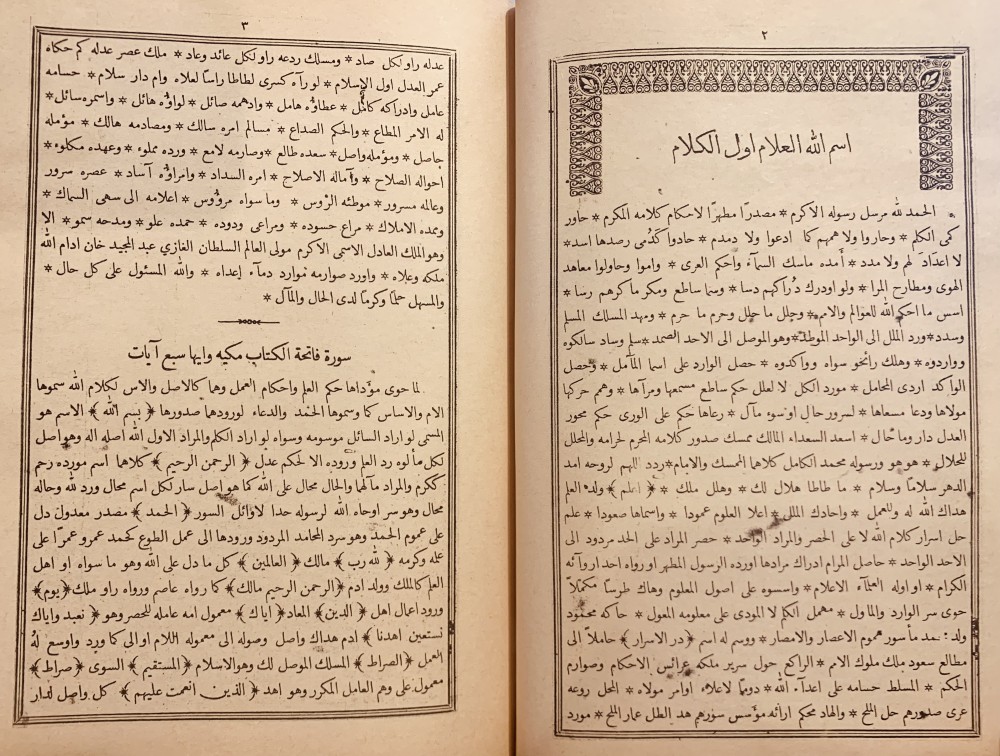 ٢
اسم الله العلام اول الكلام
الحمد لله مرسل رسوله الاكرم * مصدرًا مطهرًا لاحكام كلامه المكرم * حاور
كمى الكلم * وحاروا ولا همهم كما ادعوا ولا دمدم * حادوا كدمى رصدها اسد *
لا اعداد لهم ولا مدد * أمده ماسك السمآء واحكم العرى * واموا وحاولوا معاهد
الهوى ومطارح المرا * ولو اودرك دراكهم دسا * وسما ساطع ومكر ماكرهم رسا *
اسس ما احكم الله للعوالم والامم * وحلل ما حلل وحرم ما حرم * ومهد المسلك المسلم
وسدد * ورد الملل الى الواحد الموطد * وهو الموصل الى الاحد الصمد * سلم وساد سالكوه
وواردوه * وهلك رائحو سواه وواكدوه * حصل الوارد على اسما المآمل * وحصل
الواكد اردى المحامل * مورد الكل لا لعلل حكم ساطع مسمعها ومرآها * وهم حركها
مولاها ودعا مسعاها * لسرور حال او سوء مآل * رعاها حكم على الورى حكم محور
العدل دار وما حال * اسعد السعداء المالك ممسك صدور كلامه المحرم لحرامه والمحلل
للحلال * هو هو ورسوله محمد الكامل كلاهما الممسك والامام * ردد اللهم لروحه امد
الدهر سلامًا وسلام * ما طاطا هلال لك * وهلل ملك * ﴿ اعلم ﴾ ولد العلم
هداك الله له وللعمل * واحادك الملل * اعلا العلوم عمودا * واسماها صعودا * علم
حل اسرار كلام الله لا على الحصر والمراد الواحد * حصر المراد على الحد مردود الى
الاحد الواحد * حاصل المرام ادراك مرادها اورده الرسول المطهر او رواه احد اروآئه
الكرام * او اوله العلمآء الاعلام * واسسوه على اصول المعلوم وهاك طرسًا مكملًا
حوى سر الوارد والماول * مهمل الكلم لا المودى على معلومه المعول * حاكه محمود
ولد محمد ماسور هموم الاعصار والامصار * ووسم له اسم ﴿ در الاسرار ﴾ حاملًا الى
مطالع سعود ملك ملوك الامم * الراكع حول سرير ملكه عرائس الاحكام وصوارم
الحكم * المسلط حسامه على اعدآء الله * دومًا لاعلاء اوامر مولاه * المحل روعه
عرى صدورهم حل الملح * والهاد محكم ارائه مؤسس سورهم هد الطل عمار الملح * مورد
٣
عدله راو لكل صاد * ومسلك ردعه راو لكل عائد وعاد * ملك عصر عدله كم حكاه
عمر العدل اول الاسلام * لو رآه كسرى لطاطا راسا لعلاه وام دار سلام * حسامه
عامل وادراكه كامل * عطاؤه هامل * وادهمه صائل * لواؤه هائل * واسمره سائل *
له الامر المطاع * والحكم الصداع * مسالم امره سالك * ومصادمه هالك * مؤمله
حاصل * ومؤمله واصل * سعده طالع * وصارمه لامع * ورده مملوء * وعهده مكلوء *
احواله الصلاح * وآماله الاصلاح * امره السداد * وامراؤه آساد * عصره سرور
وعالمه مسرور * موطئه الرؤس * وما سواه مرؤوس * اعلامه الى سهى السماك *
وممده الاملاك * مراع حسوده * ومراعى ودوده * حمده علو * ومدحه سمو * الا
وهو الملك العادل الاسمى الاكرم مولى العالم السلطان الغازي عبد المجيد خان ادام الله
ملكه وعلاه * واورد صوارمه موارد دمآء اعداه * والله المسئول على كل حال *
والمسهل حلمًا وكرمًا لدى الحال والمآل *
سورة فاتحة الكتاب مكيه وايها سبع آيات
لما حوى مؤداها حكم العلم واحكام العمل وهما كالاصل والاس لكلام الله سموها
الام والاساس كما وسموها الحمد والدعاء لورودهما صدورها ﴿ بسم الله ﴾ الاسم هو
المسمى لو اراد السائل موسومه وسواه لو اراد الكلم والمراد الاول الله اصله اله وهو اصل
لكل مألوه رد العلم وروده الا لحكم عدل ﴿ الرحمن الرحيم ﴾ كلاهما اسم مورده رحم
ككرم والمراد مآلهما والحال محال على الله كما هو اصل سار لكل اسم محال ورد لله وحاله
محال وهو سر اوحاه الله لرسوله حدا لاوائل السور ﴿ الحمد ﴾ مصدر معدول دل
على عموم الحمد وهو سرد المحامد المردود ورودها الى عمل الطوع كحمد عمرو عمرًا على
علمه وكرمه ﴿ لله رب ﴾ مالك ﴿ العالمين ﴾ كل ما دل على الله وهو ما سواه او اهل
العلم كالملك وولد ادم ﴿ الرحمن الرحيم مالك ﴾ كما رواه عاصم ورواه راو ملك ﴿ يوم ﴾
ورود اعمال اهل ﴿ الدين ﴾ المعاد ﴿ اياك ﴾ معمول امه عامله للحصر وهو ﴿ نعبد واياك
نستعين اهدنا ﴾ ادم هداك واصل وصوله الى معموله اللام او الى كما ورد واوسع له
العمل ﴿ الصراط ﴾ المسلك الموصل لك وهو الاسلام ﴿ المستقيم ﴾ السوى ﴿ صراط ﴾
معمول على وهم العامل المكرر وهو اهد ﴿ الذين انعمت عليهم ﴾ كل واصل لدار